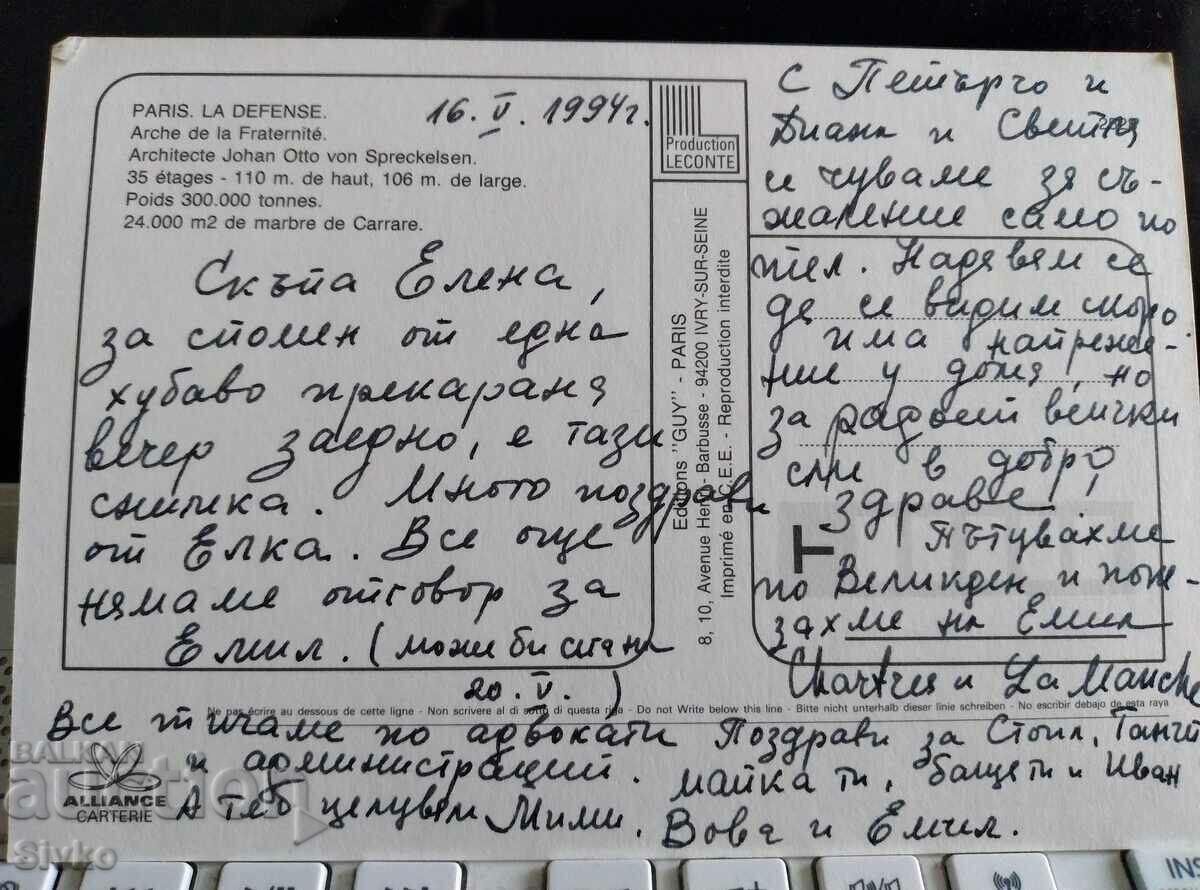 PARIS. LA DEFENSE.
Arche de la Fraternité.
Architecte Johan Otto von Spreckelsen.
35 étages - 110 m. de haut, 106 m. de large.
Poids 300.000 tonnes.
24.000 m2 de marbre de Carrare.
16. V. 1994 г.
Скъпа Елена,
за спомен от една
хубаво прекарана
вечер заедно, е тази
снимка. Много поздрави
от Елка. Все още
нямаме отговор за
Емил. (може би стана
20. V. )
Все тичаме по адвокати
и администраций.
А теб целувам Мими.
Production
LECONTE
Editions "GUY" - PARIS
8, 10, Avenue Henri Barbusse - 94200 IVRY-SUR-SEINE
Imprimé en C.E.E. - Reproduction interdite
С Петърчо и
Диана и
се чуваме за съ-
жаление само по
тел. Надявам се
да се видим скоро.
има напреже-
ние у дома, но
за радост всички
сме в добро
здраве!
Пътувахме
по Великден и пока-
захме на Емил
Chartres и La Manche
Поздрави за Стоил, Танчи
майка ти, баща ти и Иван
Вова и Емил.
Ne pas écrire au dessous de cette ligne - Non scrivere al di sotto di questa riga - Do not Write below this line - Bitte nicht unterhalb dieser linie schreiben - No escribir debajo de esta raya
ALLIANCE
CARTERIE
BALKAN
auction
Sivko
INS